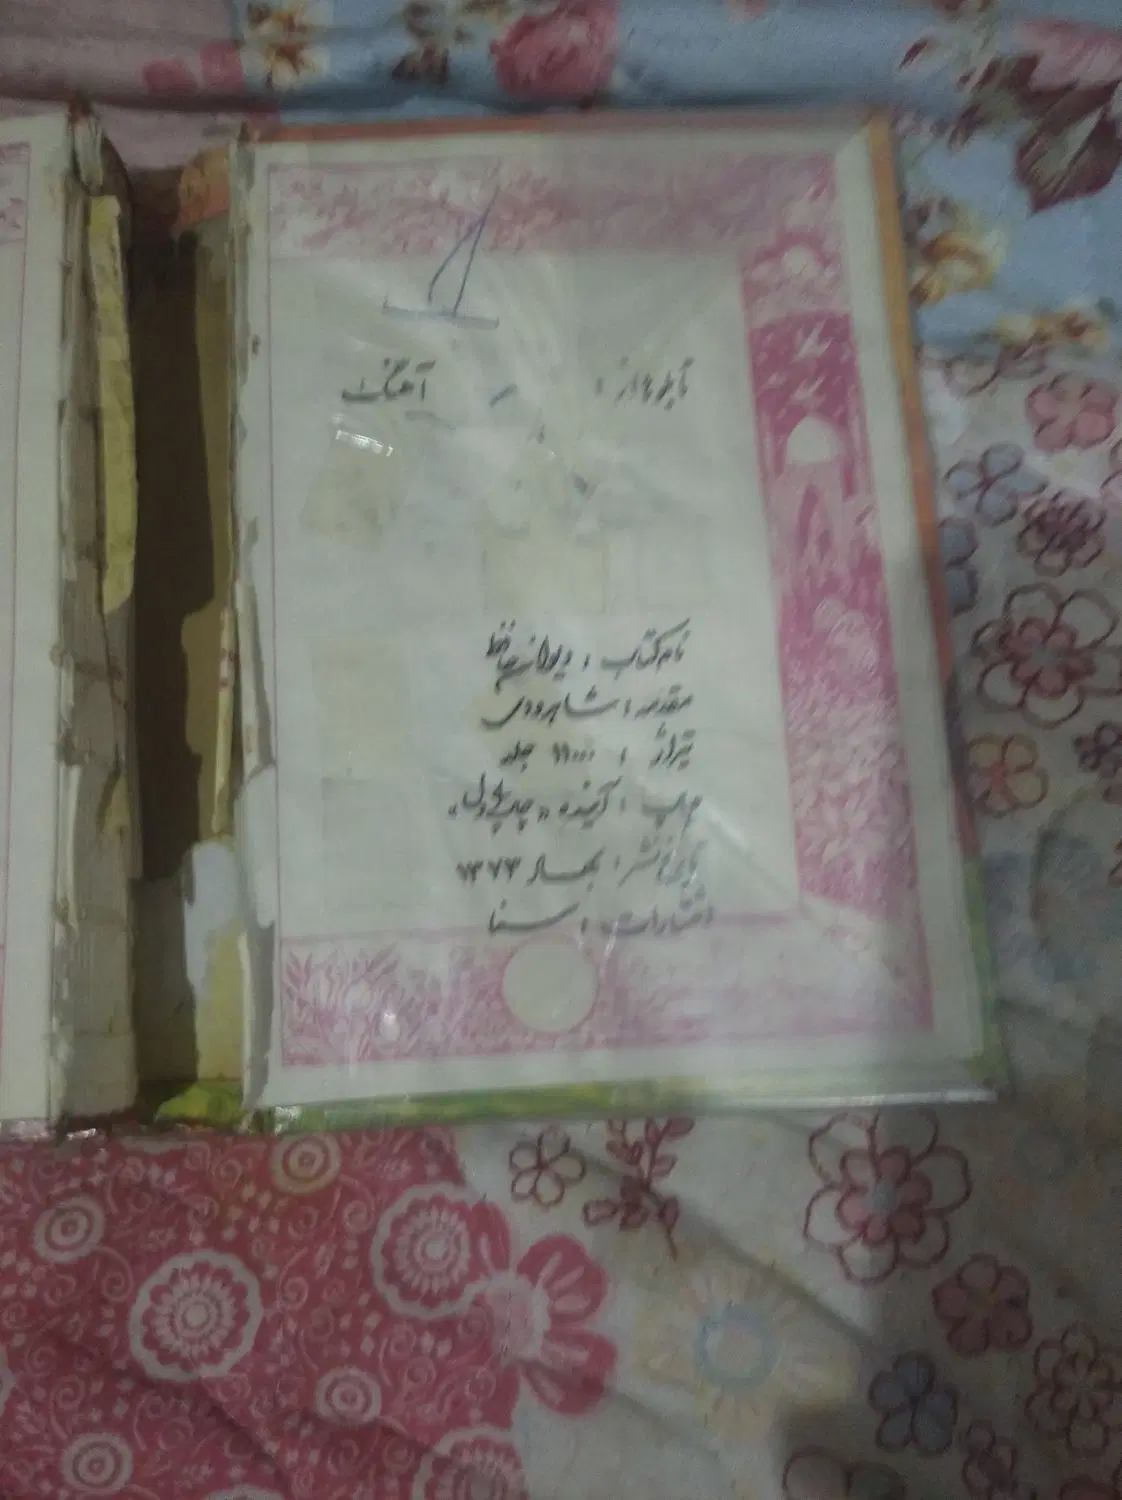 تابلوها از : آهنگ
نام کتاب : دیوان حافظ
مقدمه : شاهرودی
تیراژ : ۱۱۰۰۰ جلد
چاپ : آینده «چهارم»
تاریخ نشر : بهار ۱۳۷۳
انتشارات : سنا